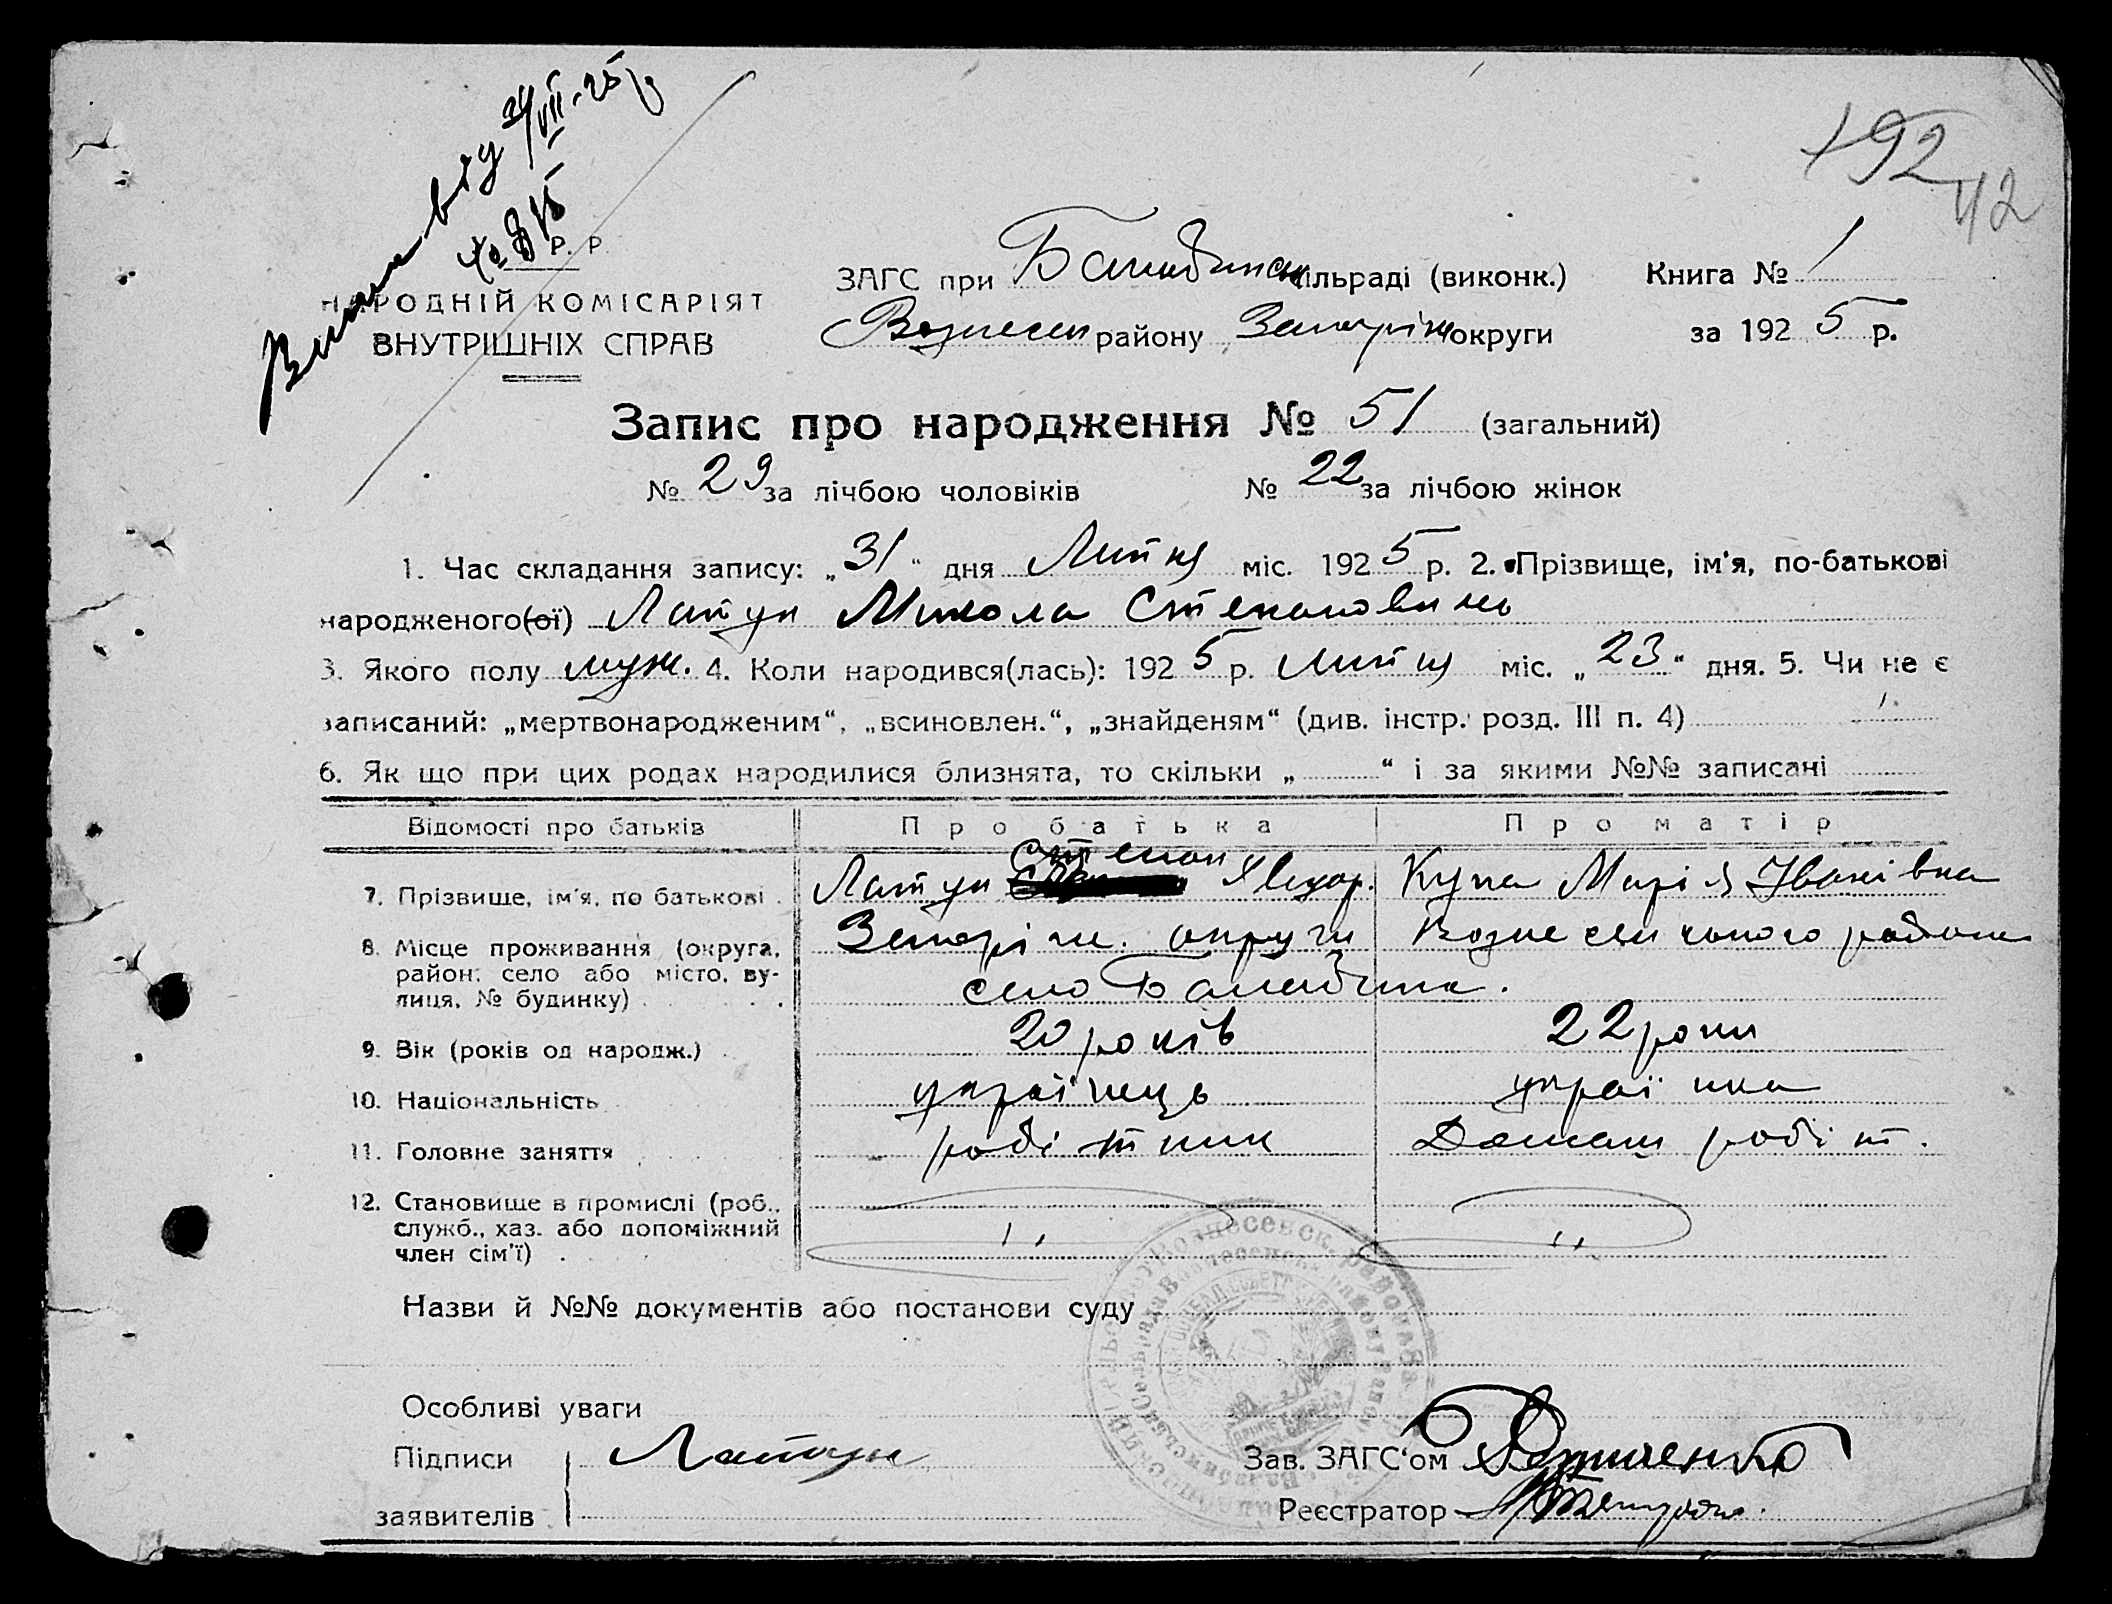 192
42
Р. Р.
НАРОДНІЙ КОМІСАРІЯТ
ВНУТРІШНІХ СПРАВ
ЗАГС при Балабинск сільраді (виконк.) Книга № 1
Вознесен району Запоріж округи за 1925 р.
Запис про народження № 51 (загальний)
№ 29 за лічбою чоловіків № 22 за лічбою жінок
1. Час складання запису: „31“ дня Липня міс. 1925 р. 2. Прізвище, ім'я, по-батькові
народженого(ої) Латун Микола Степанович
3. Якого полу муж. 4. Коли народився(лась): 1925 р. Липня міс. „23“ дня. 5. Чи не є
записаний: „мертвонародженим“, „всиновлен.“, „знайденям“ (див. інстр. розд. III п. 4)
6. Як що при цих родах народилися близнята, то скільки „ “ і за якими №№ записані
Відомості про батьків Про батька Про матір
7. Прізвище, ім'я, по батькові Латун Степан Куча Марія Іванівна
8. Місце проживання (округа, район, село або місто, вулиця, № будинку) Запоріж. округи Вознесенського района
село Балабина.
9. Вік (років од народж.) 20 років 22 роки
10. Національність українець українка
11. Головне заняття робітник Домаш робіт.
12. Становище в промислі (роб., служб., хаз. або допоміжний член сім'ї) " "
Назви й №№ документів або постанови суду
Особливі уваги
Підписи Латун Зав. ЗАГС'ом
заявителів Реєстратор